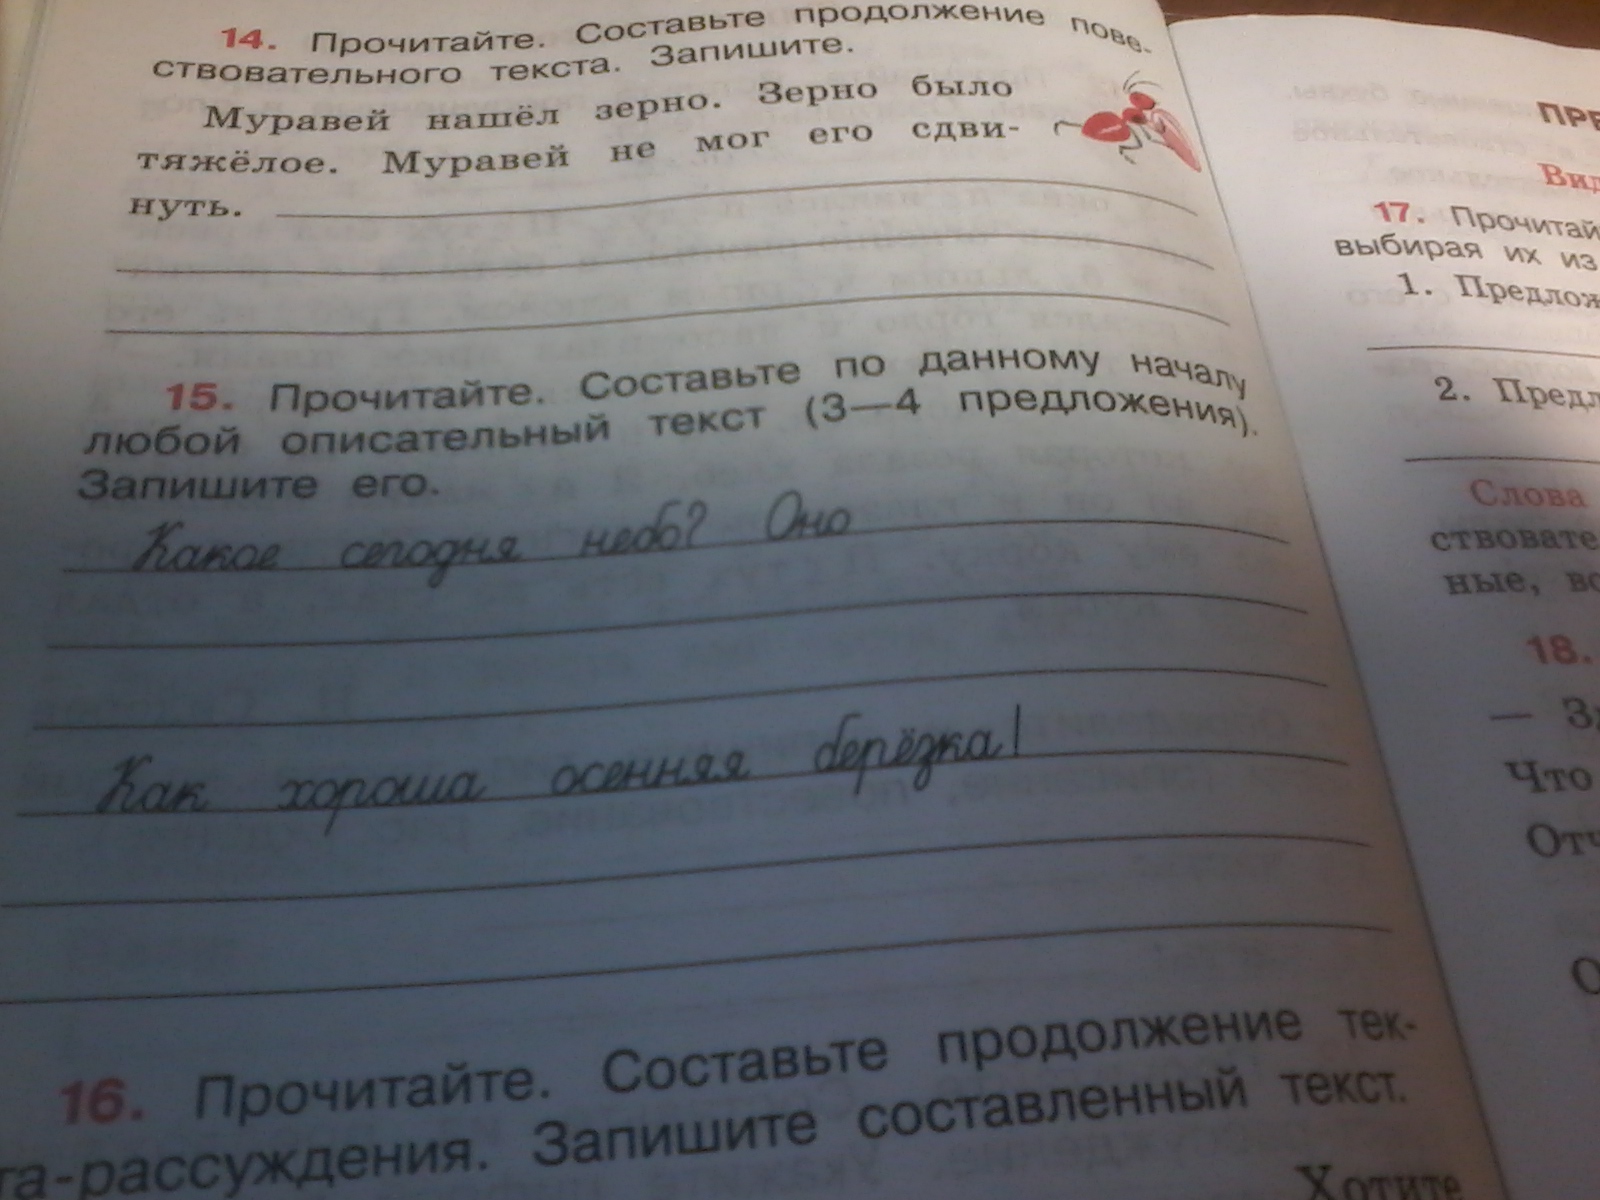 14. Прочитайте. Составьте продолжение пове-
ствовательного текста. Запишите.
Муравей нашёл зерно. Зерно было
тяжёлое. Муравей не мог его сдви-
нуть.
15. Прочитайте. Составьте по данному началу
любой описательный текст (3—4 предложения).
Запишите его.
Какое сегодня небо? Оно
Как хороша осенняя берёзка!
16. Прочитайте. Составьте продолжение тек-
та-рассуждения. Запишите составленный текст.
Хотите
ПРЕ
Вид
17. Прочитай
выбирая их из
1. Предлож
2. Предл
Слова
ствовате
ные, во
18.
— З
Что
Отч
О